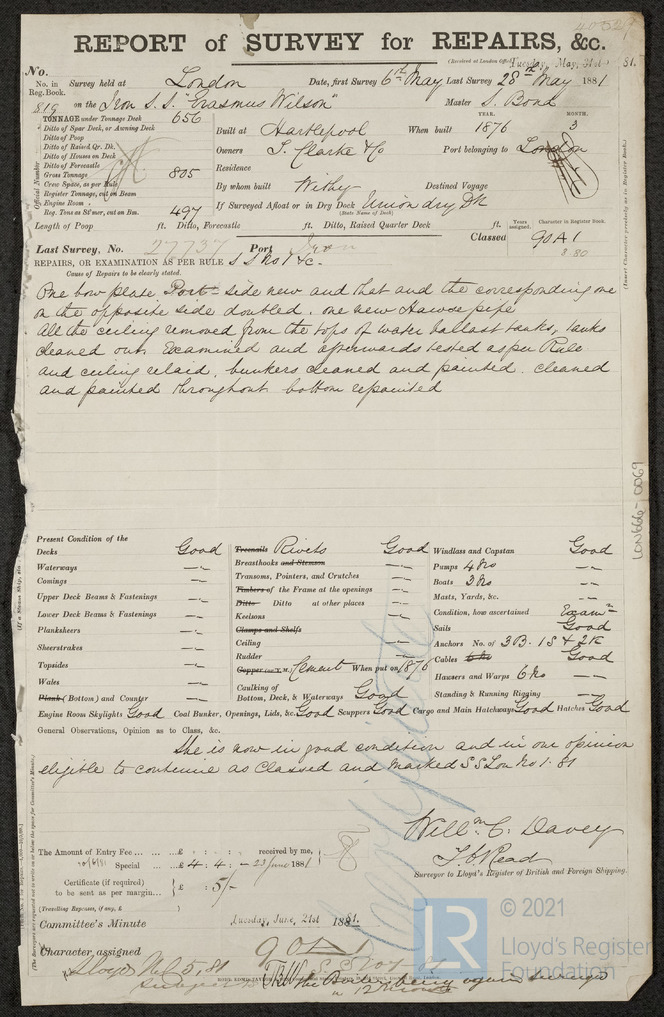 REPORT of SURVEY for REPAIRS, &c.
(Received at London Office Tuesday, May, 31st 81.
No.
No. in Reg. Book. Survey held at London Date, first Survey 6th May Last Survey 28th May 1881
819 on the Iron S.S. "Erasmus Wilson" Master S. Bond
TONNAGE under Tonnage Deck 656
Ditto of Spar Deck, or Awning Deck
Ditto of Poop
Ditto of Raised Qr. Dk.
Ditto of Houses on Deck
Ditto of Forecastle
Gross Tonnage 805
Crew Space, as per Rule
Register Tonnage, cut on Beam
Engine Room
Reg. Tons as St'mer, cut on Bm. 497
Official Number
YEAR. MONTH.
Built at Hartlepool When built 1876 3
Owners T. Clarke & Co Port belonging to London
Residence
By whom built Withy Destined Voyage
If Surveyed Afloat or in Dry Dock Union dry Dk
(State Name of Dock)
Length of Poop ft. Ditto, Forecastle ft. Ditto, Raised Quarter Deck ft.
Years assigned. Character in Register Book.
Last Survey, No. 27737 Port Classed 90A1
3.80
REPAIRS, OR EXAMINATION AS PER RULE S S No 1 &c.
Cause of Repairs to be clearly stated.
One bow plate Port side new and that and the corresponding one
on the opposite side doubled. one new Hawse pipe
All the ceiling removed from the tops of water ballast tanks, tanks
cleaned out. Examined and afterwards tested as per Rule
and ceiling relaid, bunkers cleaned and painted. cleaned
and painted throughout bottom repainted
LON666-0069
Present Condition of the
Decks Good
Waterways —"—
Comings —"—
Upper Deck Beams & Fastenings —"—
Lower Deck Beams & Fastenings —"—
Planksheers —"—
Sheerstrakes —"—
Topsides —"—
Wales —"—
Plank (Bottom) and Counter —"—
Treenails Rivets Good
Breasthooks and Stemson —"—
Transoms, Pointers, and Crutches —"—
Timbers of the Frame at the openings —"—
Ditto Ditto at other places —"—
Keelsons —"—
Clamps and Shelfs
Ceiling —"—
Rudder —"—
Copper (or Y.M.) Cement When put on 1876
Caulking of
Bottom, Deck, & Waterways Good
Windlass and Capstan Good
Pumps 4 No —"—
Boats 3 No —"—
Masts, Yards, &c. —"—
Condition, how ascertained Examn
Sails Good
Anchors No. of 3B. 1S & 2K
Cables Good
Hawsers and Warps 6 No —"—
Standing & Running Rigging —"—
Engine Room Skylights Good Coal Bunker, Openings, Lids, &c. Good Scuppers Good Cargo and Main Hatchways Good Hatches Good
General Observations, Opinion as to Class, &c.
She is now in good condition and in our opinion
eligible to continue as Classed and Marked S S Lon No 1. 81
Willm. C. Davey
T. C. Read
Surveyor to Lloyd's Register of British and Foreign Shipping.
The Amount of Entry Fee £ : : received by me,
Special £ 4 : 4 : – 23 June 1881
Certificate (if required) to be sent as per margin £ : 5/-
(Travelling Expenses, if any, £ )
Committee's Minute Tuesday, June, 21st 1881.
Character assigned 90 A 1
Lloyds
LR
© 2021
Lloyd's Register
Foundation